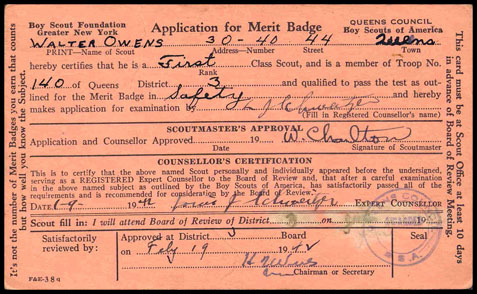 Boy Scout Foundation
Greater New York
Application for Merit Badge
QUEENS COUNCIL
Boy Scouts of America
WALTER OWENS 30-40 44 Queens
PRINT—Name of Scout Address—Number Street Town
hereby certifies that he is a First Class Scout, and is a member of Troop No.
Rank
140 of Queens District 3 and qualified to pass the test as out-
lined for the Merit Badge in Safety and hereby
makes application for examination by
(Fill in Registered Counsellor's name)
SCOUTMASTER'S APPROVAL
Application and Counsellor Approved 19 W. Charlton
Signature of Scoutmaster
COUNSELLOR'S CERTIFICATION
This is to certify that the above named Scout personally and individually appeared before the undersigned,
serving as a REGISTERED Expert Counsellor to the Board of Review and, that after a careful examination
in the above named subject as outlined by the Boy Scouts of America, has satisfactorily passed all of the
requirements and is recommended for consideration by the Board of Review.
DATE 1-9 19 42 EXPERT COUNSELLOR
Scout fill in: I will attend Board of Review of District 3 19
Satisfactorily
reviewed by:
Approved at District 3
on Feby 19 1942
Chairman or Secretary
F&E-38q
It's not the number of Merit Badges you earn that counts
but how well you know the Subject.
This card must be at Scout Office at least 10 days
in advance of Board of Review Meeting.
B.S.A.